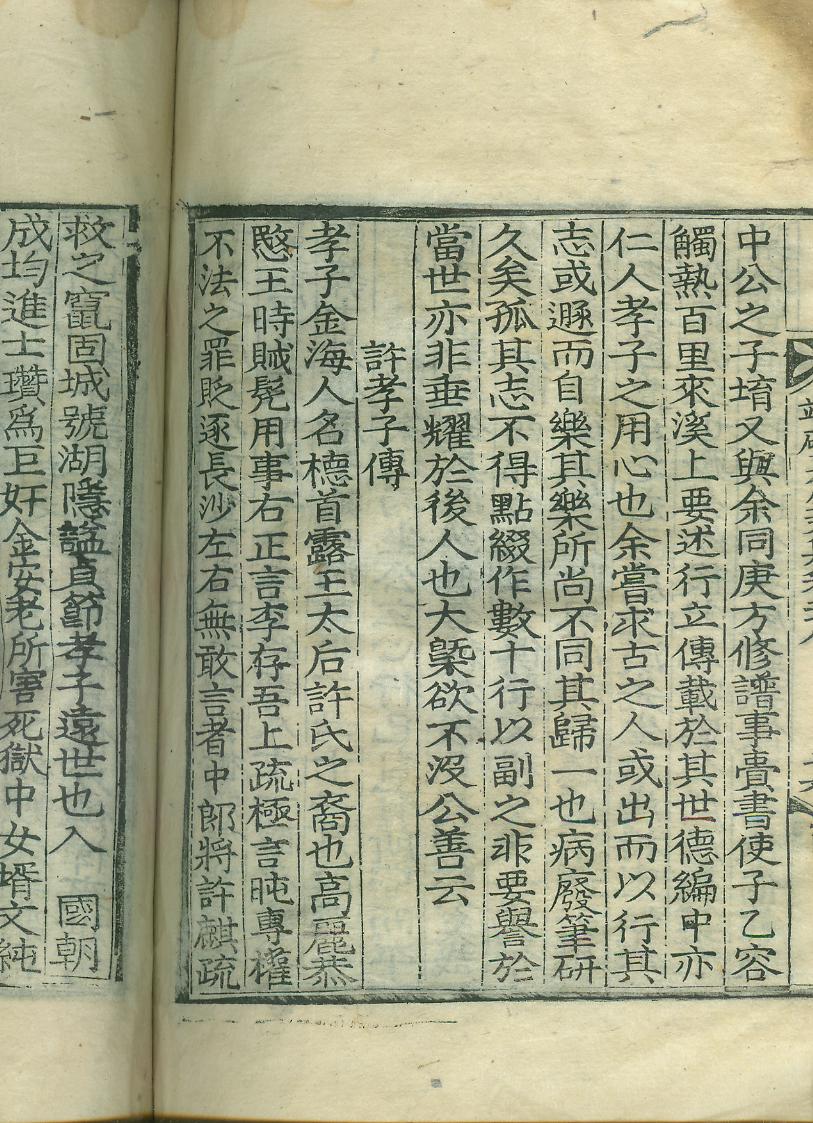 中公之子堉又與余同庚方修譜事賷書使子乙容
觸熱百里來溪上要述行立傳載於其世德編中亦
仁人孝子之用心也余嘗求古之人或出而以行其
志或遯而自樂其樂所尚不同其歸一也病廢筆研
久矣孤其志不得點綴作數十行以副之非要譽於
當世亦非垂耀於後人也大槩欲不沒公善云
許孝子傳
孝子金海人名德首露王太后許氏之裔也高麗恭
愍王時賊髡用事右正言李存吾上疏極言旽專權
不法之罪貶逐長沙左右無敢言者中郎將許麒疏
救之竄固城號湖隱謚貞節孝子遠世也入 國朝
成均進士瓚爲巨奸金安老所害死獄中女壻文純